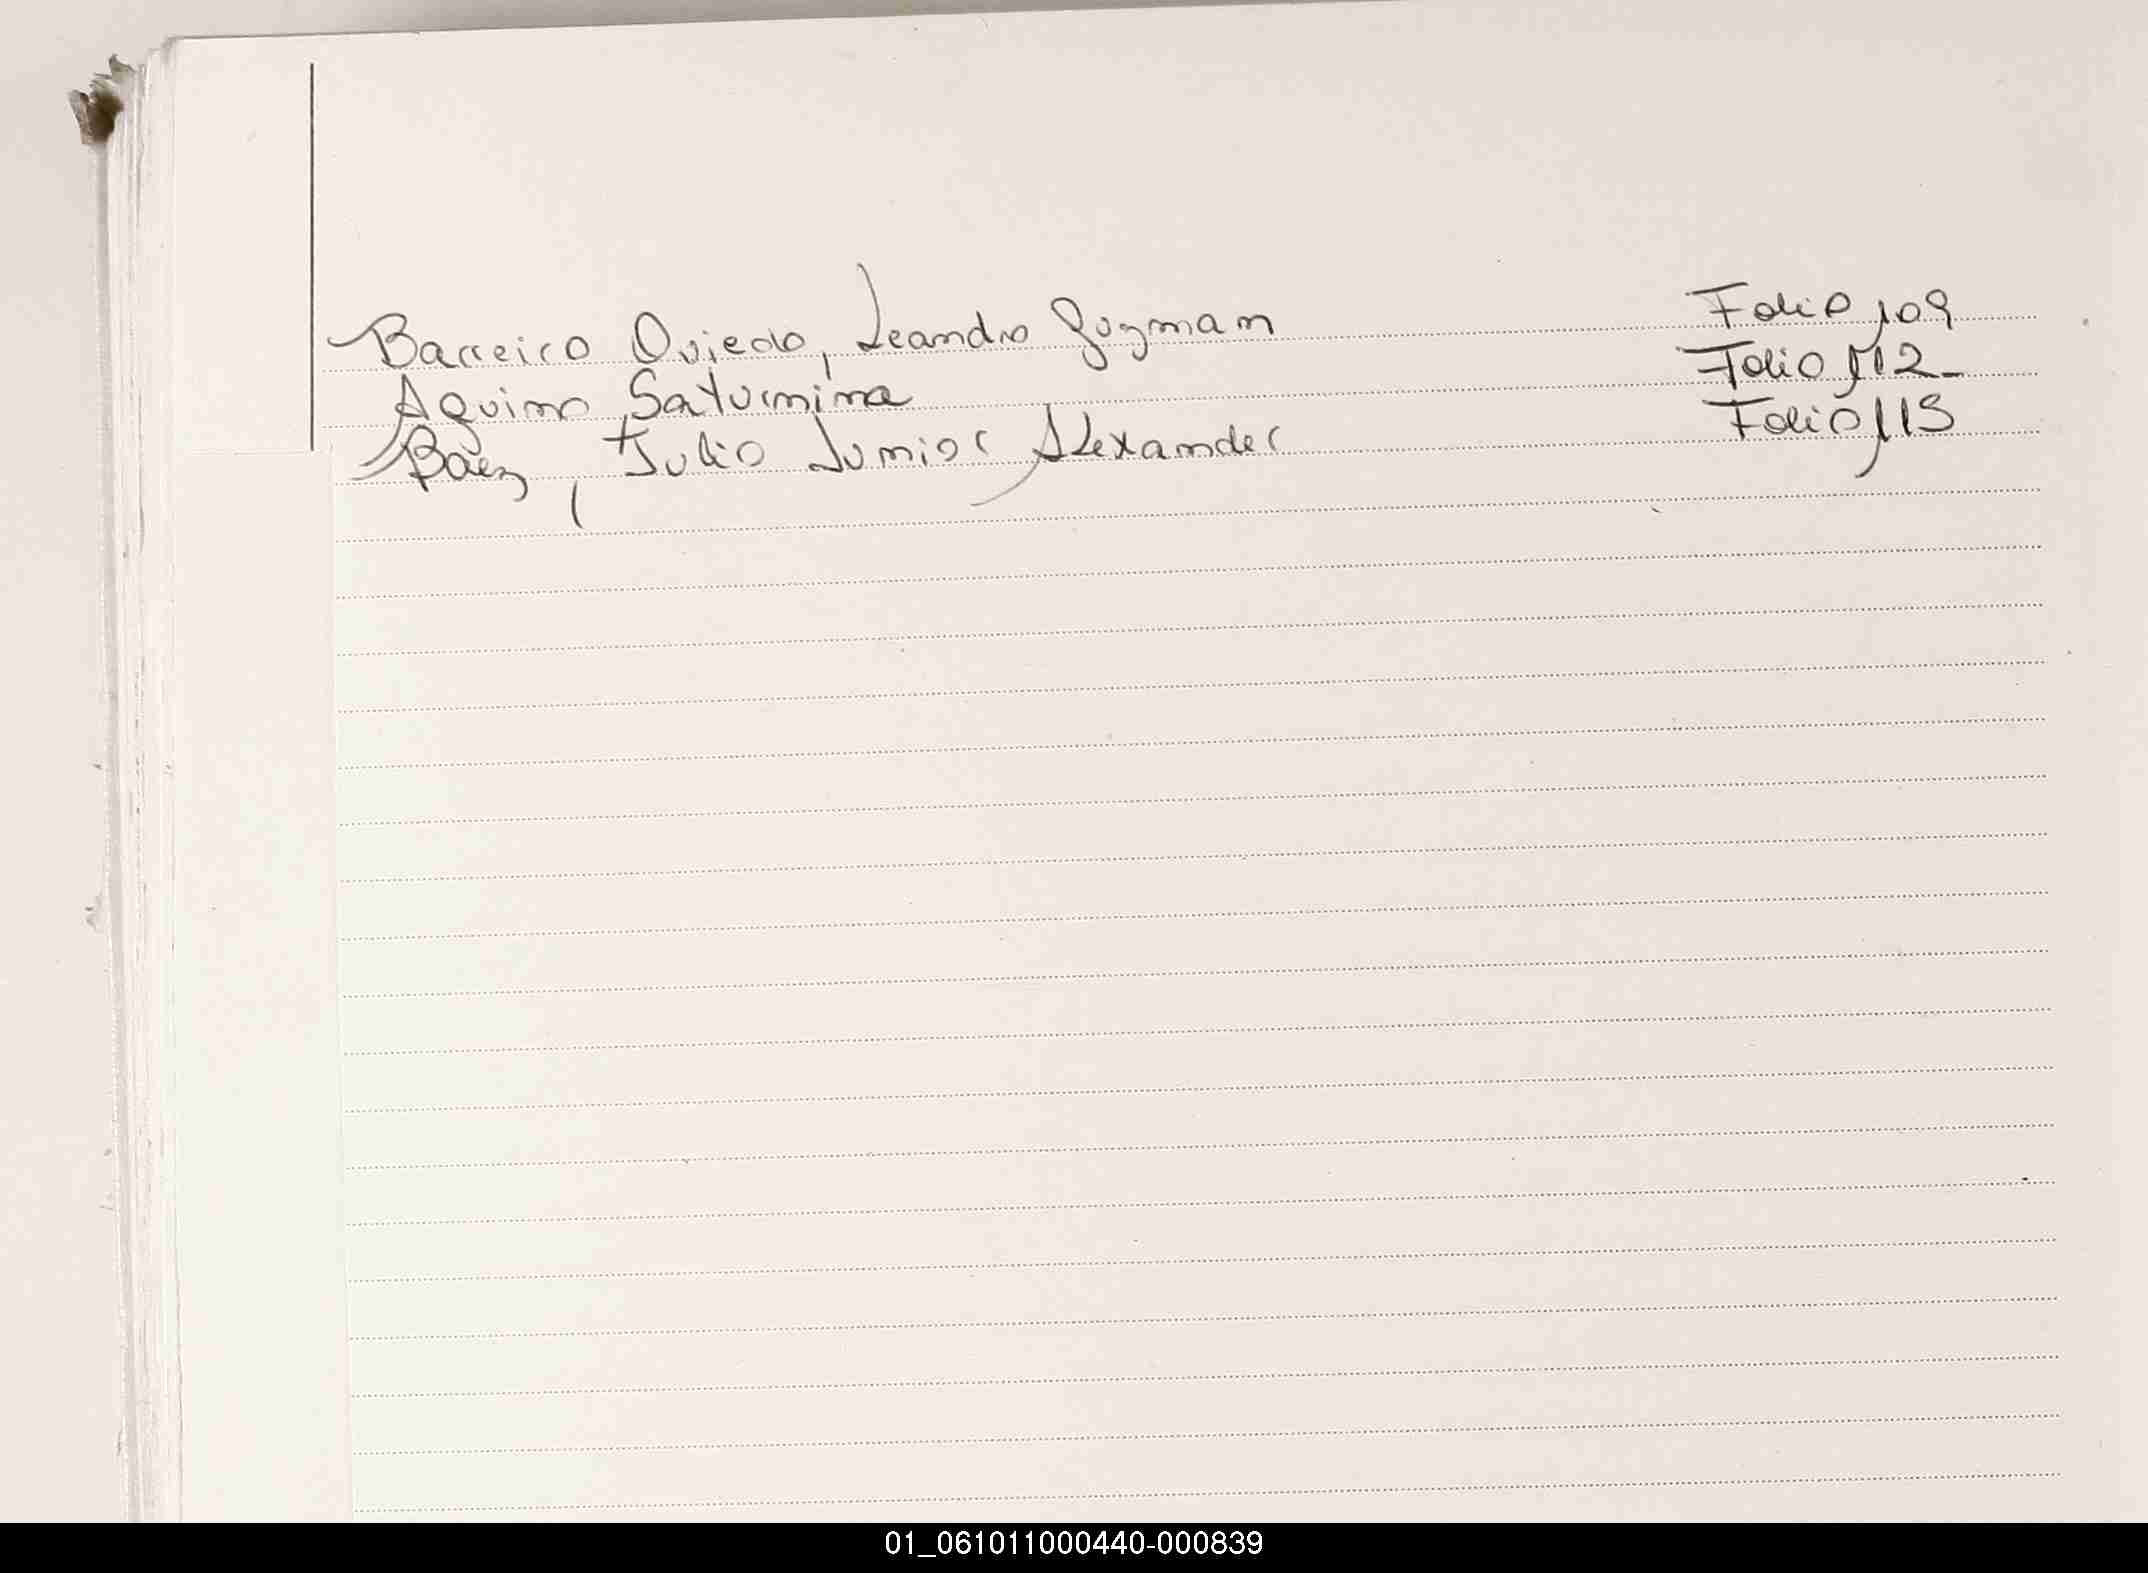 Barreiro Oviedo, Leandro Guzman Folio 109
Aquino, Saturnina Folio 112-
Báez, Julio Junior Alexander Folio 115
01_061011000440-000839